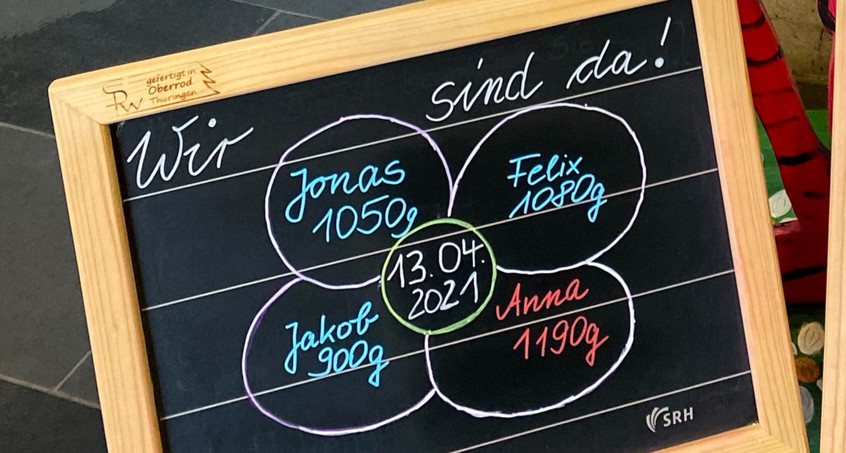 RW
gefertigt in
Oberrod
Thüringen
Wir sind da!
Jonas
1050g
Felix
1080g
13.04.
2021
Jakob
900g
Anna
1190g
SRH